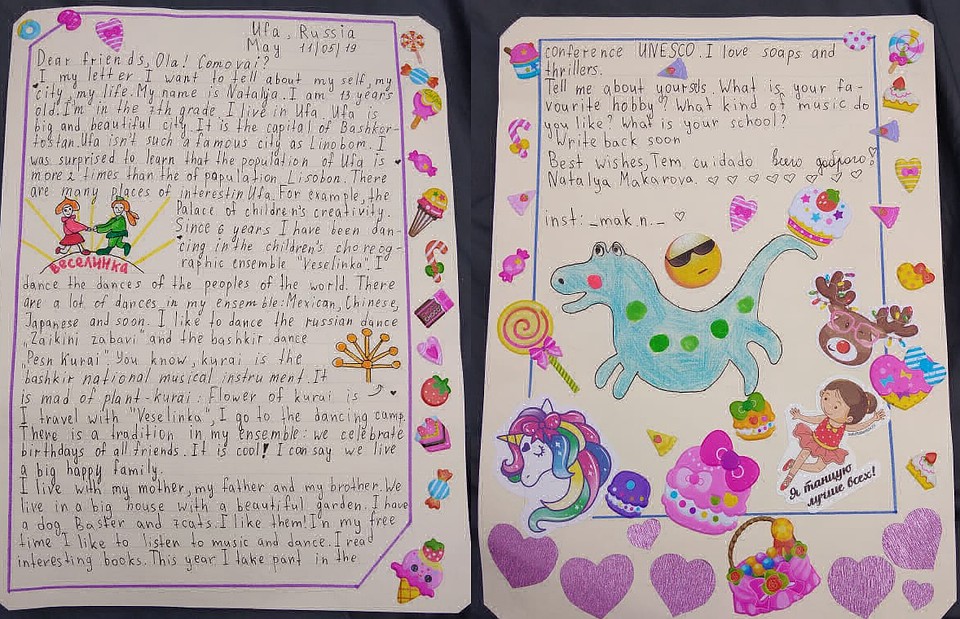 Ufa, Russia
May 11/05/19
Dear friends, Ola! Comovai?
I my letter I want to tell about my self, my
city, my life. My name is Natalya. I am 13 years
old. I'm in the 7th grade. I live in Ufa. Ufa is
big and beautiful city. It is the capital of Bashkor-
tostan. Ufa isn't such a famous city as Linobom. I
was surprised to learn that the population of Ufa is
more 2 times than the of population Lisobon. There
are many places of interestin Ufa. For example, the
Palace of children's creativity.
Since 6 years I have been dan-
cing in the children's choreog-
raphic ensemble "Veselinka". I
веселинка
dance the dances of the peoples of the world. There
are a lot of dances in my ensemble: Mexican, Chinese,
Japanese and soon. I like to dance the russian dance
"Zaikini zabavi" and the bashkir dance
"Pesn Kurai". You know, kurai is the
bashkir national musical instru ment. It
is mad of plant-kurai. Flower of kurai is
I travel with "Veselinka". I go to the dancing camp.
There is a tradition in my ensemble: we celebrate
birthdays of all friends. It is cool! I can say we live
a big happy family.
I live with my mother, my father and my brother. We
live in a big house with a beautiful garden. I have
a dog Baster and 7cats. I like them! In my free
time I like to listen to music and dance. I read
interesting books. This year I take part in the
CHOCO
conference UNESCO. I love soaps and
thrillers.
Tell me about yourself. What is your fa-
vourite hobby? What kind of music do
you like? What is your school?
Write back soon
Best wishes, Tem cuidado всего доброго!
Natalya Makarova.
inst: _mak.n._
Я танцую
лучше всех!